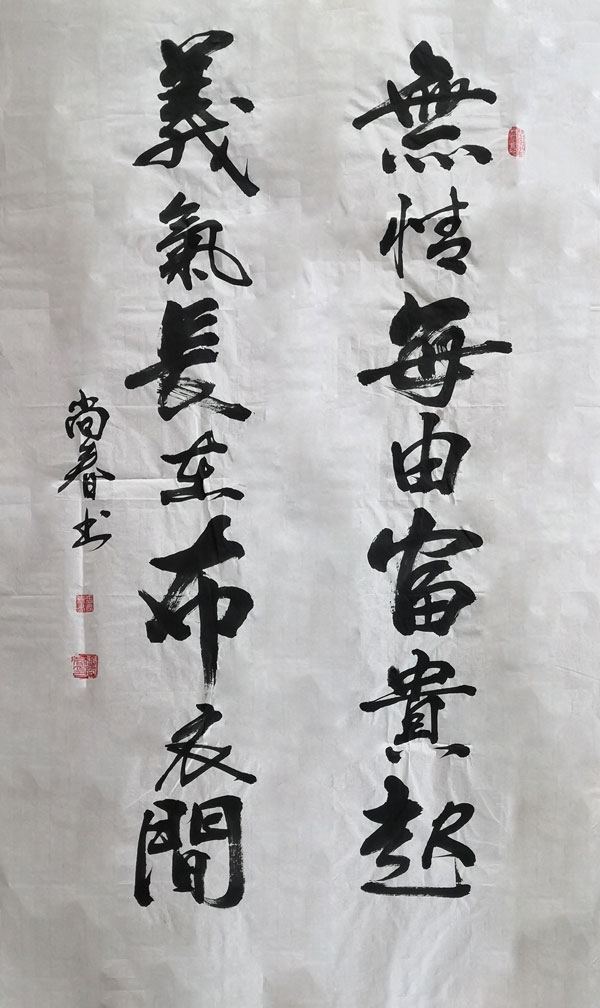 無情每由富貴起
義氣長在布衣間
尚春书